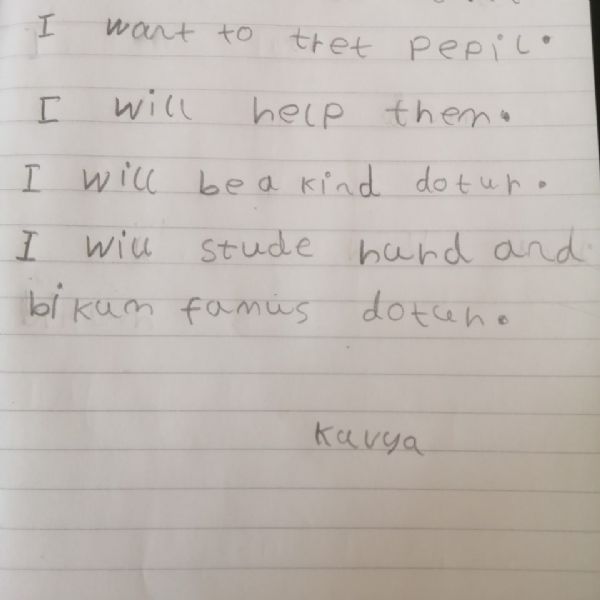 I want to tret pepil.
I will help them.
I will be a kind dotur.
I will stude hard and
bikum famus dotur.
Kavya